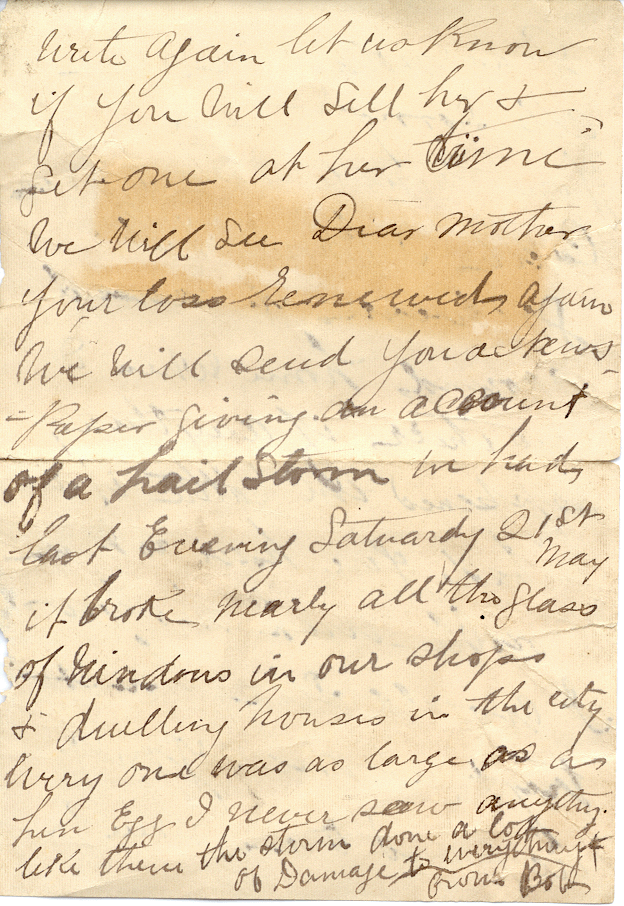 write again let us know
if you will sell her &
get one at her time
we will see Dear Mother
your loss renewed again
We will send you a News-
-Paper giving an account
of a hail storm we had
last Evening Satuardy 21st May
it broke nearly all the glass
of windows in our shops
& dwelling houses in the city
every one was as large as as
hen Egg I never saw anything
like them the storm done a lot
of Damage to everything
from Bob